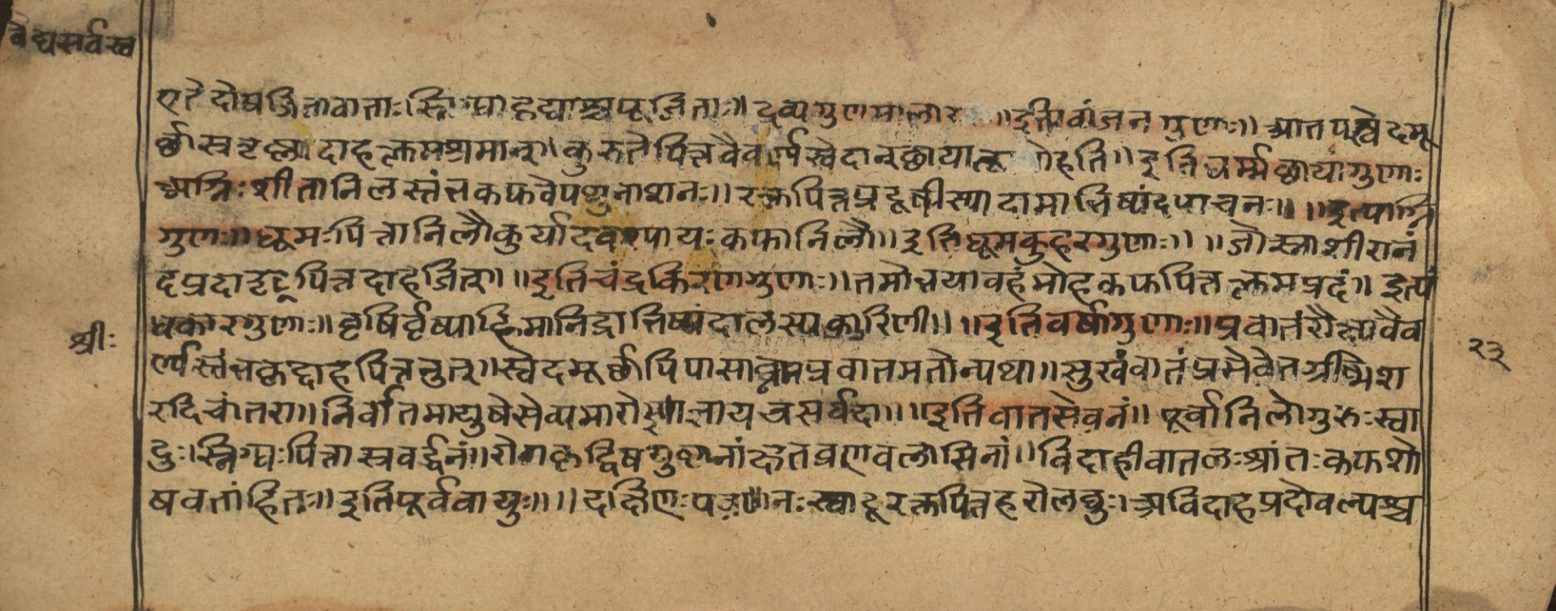 वैद्यसर्वस्व
दोषजितावाताः स्निग्धाहृद्याश्चपूजिताः॥ द्रव्यगुणमालार ॥इति गुणाः॥ आतपस्वेदमू
र्छास्रतृष्णादाहक्लमश्रमान्॥ कुरुतेपित्तवैवर्ण्यस्वेदान्छाया ॥इतिघर्म्मछायागुणाः
अग्निःशीतानिलस्तंभकफवेपथुनाशनः॥ रक्तपित्तप्रदूषीस्यादामाभिष्यंदपाचनः॥ ॥इत्यग्नि
गुणाः॥ धूमःपित्तानिलौकुर्यादवश्यायःकफानिलौ॥ इतिधूमकुहरगुणाः॥ ॥जोस्नाशीरानं
दप्रदातृट्पित्तदाहजित्॥ ॥इतिचंद्रकिरणगुणाः॥ तमोभयावहंमोहकफपित्तक्लमप्रदं॥ इत्यं
धकारगुणाः॥ वृषिर्वृष्याहिमानिद्राभिष्यंदालस्यकारिणी॥ ॥इतिवर्षागुणाः॥ प्रवातंरौक्ष्यवैव
र्ण्यस्तंभकृद्दाहपित्तनुत्॥ स्वेदमूर्छापिपासाघ्नमप्रवातमतोन्यथा॥ सुखंवातंप्रसेवेतग्रीष्मेश
रदिचांतरा॥ निर्वातमायुषेसेव्यमारोग्यायचसर्वदा॥ ॥इतिवातसेवनं॥ पूर्वानिलोगुरुःस्वा
दुःस्निग्धःपित्तास्रवर्द्धनं॥ रोगकृद्विषगुल्मनांक्षतव्रणवलासिनां॥ विदाहीवातलःश्रांतःकफशो
षवतांहितः॥ इतिपूर्ववायुः॥ ॥ दक्षिणःपवनःस्वादूरक्तपित्तहरोलघुः। अविदाहप्रदोवल्यश्च
श्रीः
२३